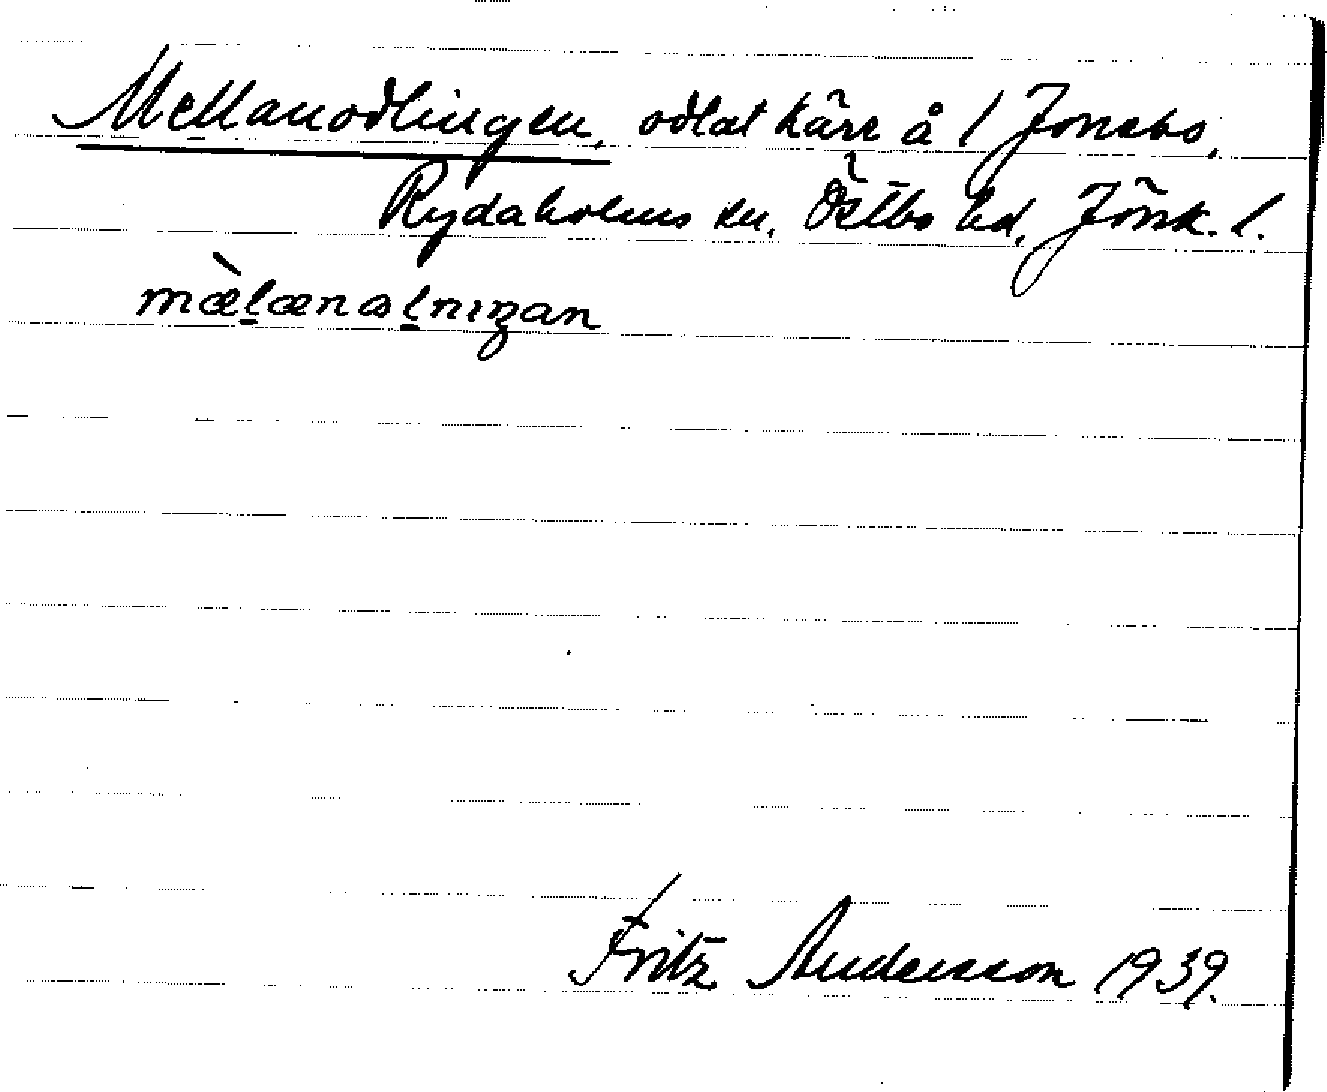 Mellanodlingen, odlat kärr å 1 Jonsbo,
Rydaholms sn, Östbo hd, Jönk. l.
mæ̀lænɷlnıŋan
Fritz Andersson 1939.